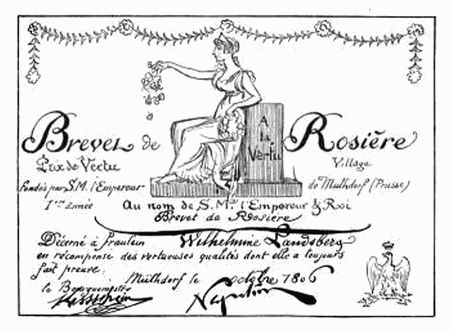 Brevet de Rosière
A
la
Vertu
Prix de Vertu
fondés par S. M. l'Empereur
1ère année
Village
de Mülhdorf (Prusse)
Au nom de S. Mté l'Empereur & Roi
Brevet de Rosière
Décerné à fraulein Wilhelmine Landsberg
en récompense des vertueuses qualités dont elle a toujours
fait preuve.
Mülhdorf le octobre 1806
le Bourgmestre
Napoléon